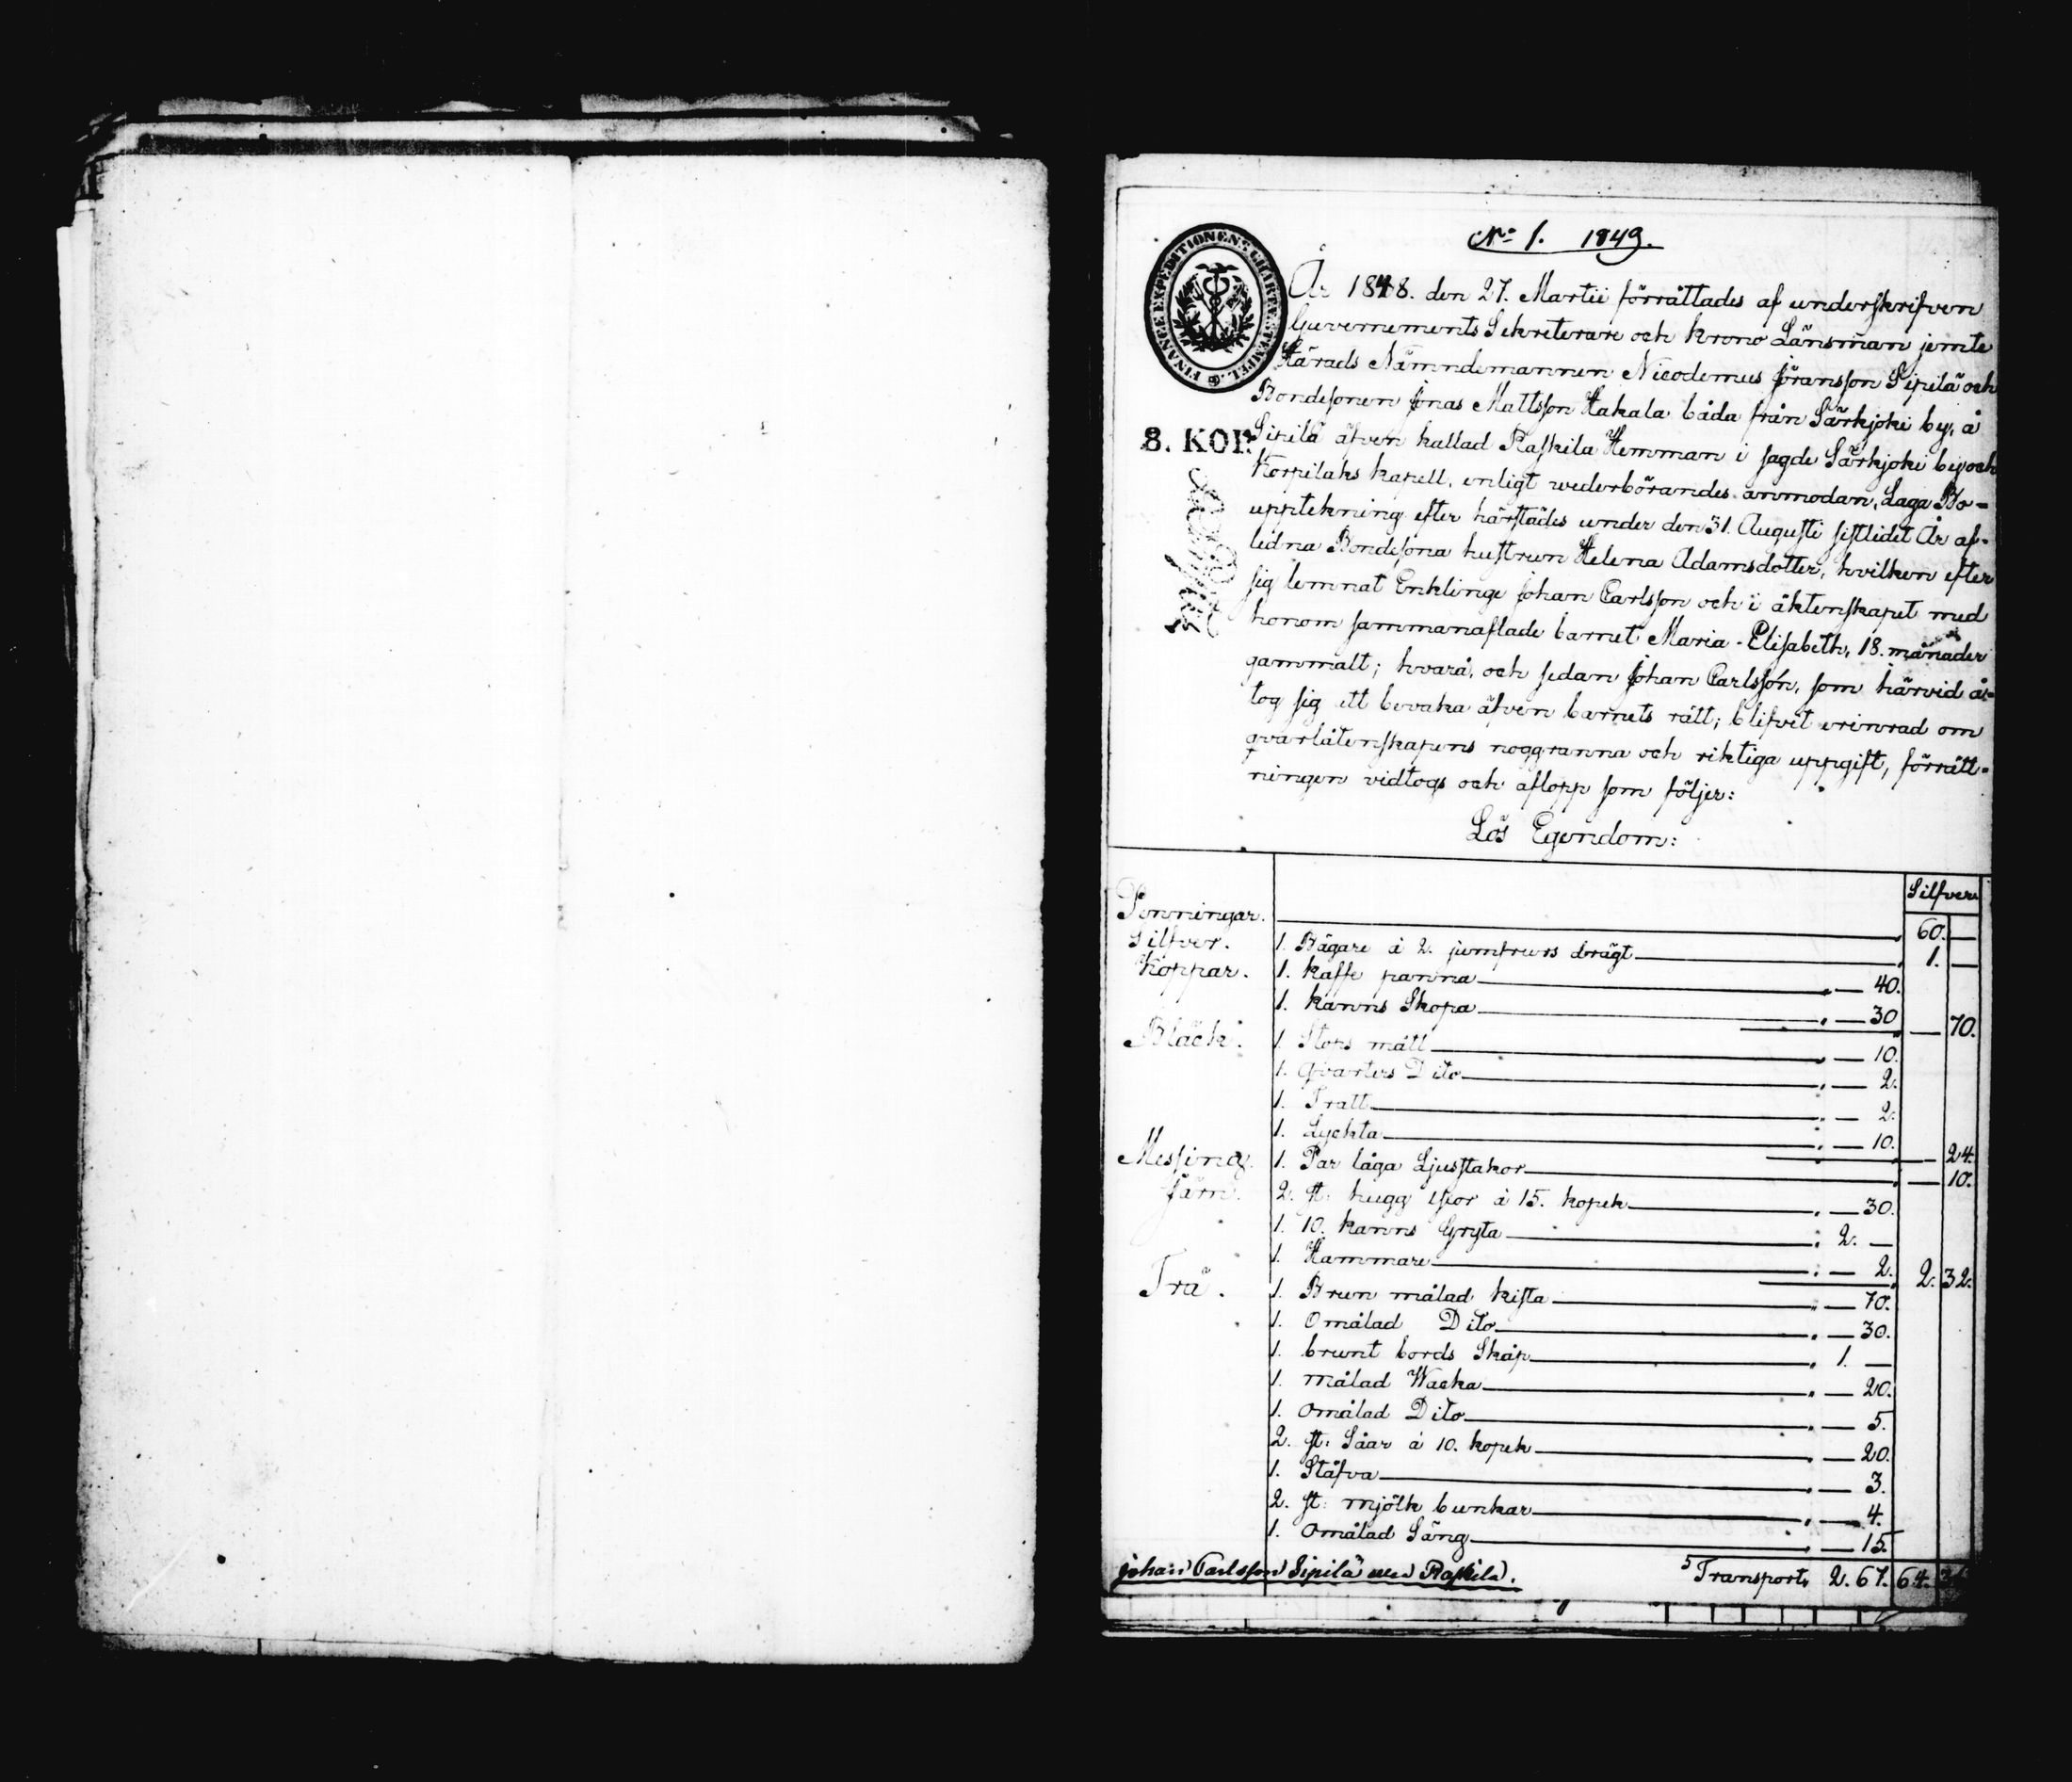 No 1. 1849.
FINANCE EXPEDITIONENS CHARTÆ STEMPEL.
8. KOP.
År 1848. den 27. Martii förrättades af underskrifven
Guvernements Sekreterare och Krono Länsman jemte
Härads Nämndemannen Nicodemus Jöransson Sipilä och
Bondesonen Jonas Mattsson Hakala båda från Särkjoki by, å
Sipilä äfven kallad Raskila Hemman i sagde Särkjoki by och
Korpilaks kapell, enligt wederbörandes anmodan, Laga Bo-
upptekning efter härstädes under den 31 Augusti sistlidet År af-
ledna Bondesona hustrun Helena Adamsdotter, hvilken efter
sig lemnat Enklinge Johan Carlsson och i äktenskapet med
honom sammanaflade barnet Maria-Elisabeth, 18. månader
gammalt; hvarå, och sedan Johan Carlsson, som härvid å-
tog sig att bevaka äfven barnets rätt; blifvet erinrad om
qvarlåtenskapens noggranna och riktiga uppgift, förrätt-
ningen vidtogs och aflopp som följer:
Lös Egendom:
Silfver
Penningar. 60. —
Silfver. 1. Bägare à 2. jumfrurs drägt 1. —
Koppar. 1. kaffe panna — 40.
1. kanns Skopa — 30 — 70.
Bläck. 1. Stops mått — 10.
1. qvarters Dito — 2.
1. Tratt — 2.
1. Lyckta — 10. — 24.
Messing. 1. Par låga Ljusstakor — 10.
Järn. 2. st: hugg yxor à 15. kopek — 30.
1. 10. kanns Gryta 2. —
1. Hammare — 2. 2. 32.
Trä. 1. Brun målad kista — 70.
1. Omålad Dito — 30.
1. brunt bords Skåp 1. —
1. målad Wacka — 20.
1. omålad Dito — 5.
2. st: Såar à 10. kopek — 20.
1. Stäfva — 3.
2. st: mjölk bunkar — 4.
1. omålad Säng — 15.
Johan Carlsson Sipilä Raskila. Transport, 2. 67. 64.